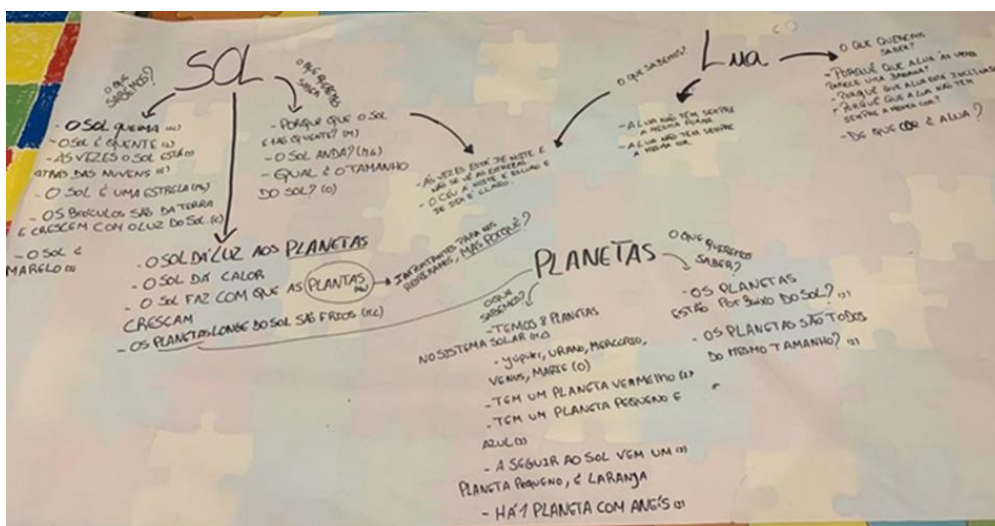 SOL
O QUE
SABEMOS?
- O SOL QUEIMA
- O SOL É QUENTE
- ÀS VEZES O SOL ESTÁ
ATRÁS DAS NUVENS
- O SOL É UMA ESTRELA
- OS SÃO DA TERRA
E CRESCEM COM O LUZ DO SOL (C)
- O SOL É
MARELO
O QUE QUEREMOS
SABER
- PORQUE QUE O SOL
É TÃO QUENTE? (M)
- O SOL ANDA?
- QUAL É O TAMANHO
DO SOL? (O)
- O SOL DÁ LUZ AOS PLANETAS
- O SOL DÁ CALOR
- O SOL FAZ COM QUE AS PLANTAS
CRESCAM
- OS PLANETAS LONGE DO SOL SÃO FRIOS
IMPORTANTES PARA NÓS
MAS PORQUÊ?
- ÀS VEZES ESTÁ DE NOITE E
NÃO SE VÊ AS ESTRELAS
- O CÉU À NOITE É ESCURO E
DE DIA É CLARO.
Lua
O QUE SABEMOS?
- A LUA NÃO TEM SEMPRE
A MESMA FORMA
- A LUA NÃO TEM SEMPRE
A MESMA COR
O QUE QUEREMOS
SABER?
- PORQUÊ QUE A LUA ÀS VEZES
PARECE UMA BANANA?
- PORQUÊ QUE A LUA ESTÁ INCLINADA
- PORQUÊ QUE A LUA NÃO TEM
SEMPRE A MESMA COR?
- DE QUE COR É A LUA?
PLANETAS
O QUE
SABEMOS?
- TEMOS 8 PLANETAS
NO SISTEMA SOLAR
- URANO, MERCÚRIO,
VENUS, MARTE (O)
- TEM UM PLANETA VERMELHO
- TEM UM PLANETA PEQUENO E
AZUL
- A SEGUIR AO SOL VEM UM
PLANETA PEQUENO, É LARANJA
- HÁ 1 PLANETA COM ANÉIS
O QUE QUEREMOS
SABER?
- OS PLANETAS
ESTÃO POR BAIXO DO SOL?
- OS PLANETAS SÃO TODOS
DO MESMO TAMANHO?